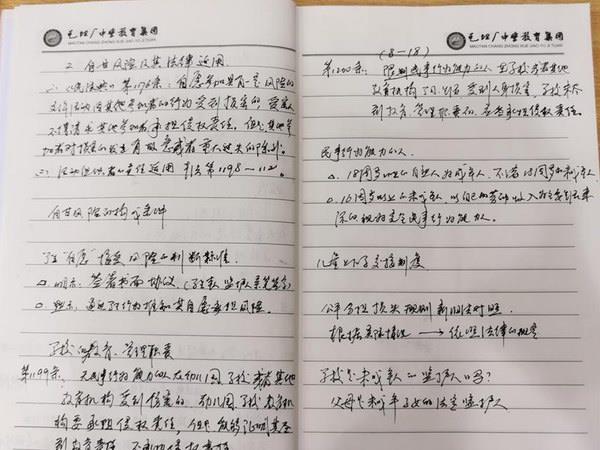 毛坦厂中学教育集团
MAOTAN CHANG ZHONG XUE JIAO YU JI TUAN
2. 自甘风险及其法律适用
1)《民法典》第1176条:自愿参加具有一定风险的
文体活动因其他参加者的行为受到损害的,受害人
不得请求其他参加者承担侵权责任。但是其他参
加者对损害的发生有故意或者重大过失的除外。
2) 活动组织者的责任适用
自甘风险的构成要件
学生"自愿"接受风险的判断标准
明示:签署书面协议
默示:通过行为推知其自愿承担风险。
学校的教育、管理职责
第1199条:无民事行为能力人在幼儿园、学校或者其他
教育机构受到侵害的,幼儿园、学校、教育机
构要承担侵权责任,但是能够证明其尽
到教育
毛坦厂中学教育集团
MAOTAN CHANG ZHONG XUE JIAO YU JI TUAN
(8-18)
第1200条:限制民事行为能力人在学校或者其他
教育机构学习、生活受到人身损害,学校未尽
到教育、管理职责的,应当承担侵权责任。
民事行为能力人
18周岁以上的自然人为成年人,不满18周岁为未成年人
16周岁以上的未成年人,以自己的劳动收入为主要生活来
源的视为完全民事行为能力人。
儿童上下学交接制度
公平分担损失规则新旧法对照
根据实际情况 → 依照法律的规定
学校是未成年人的监护人吗?
父母是未成年子女的法定监护人